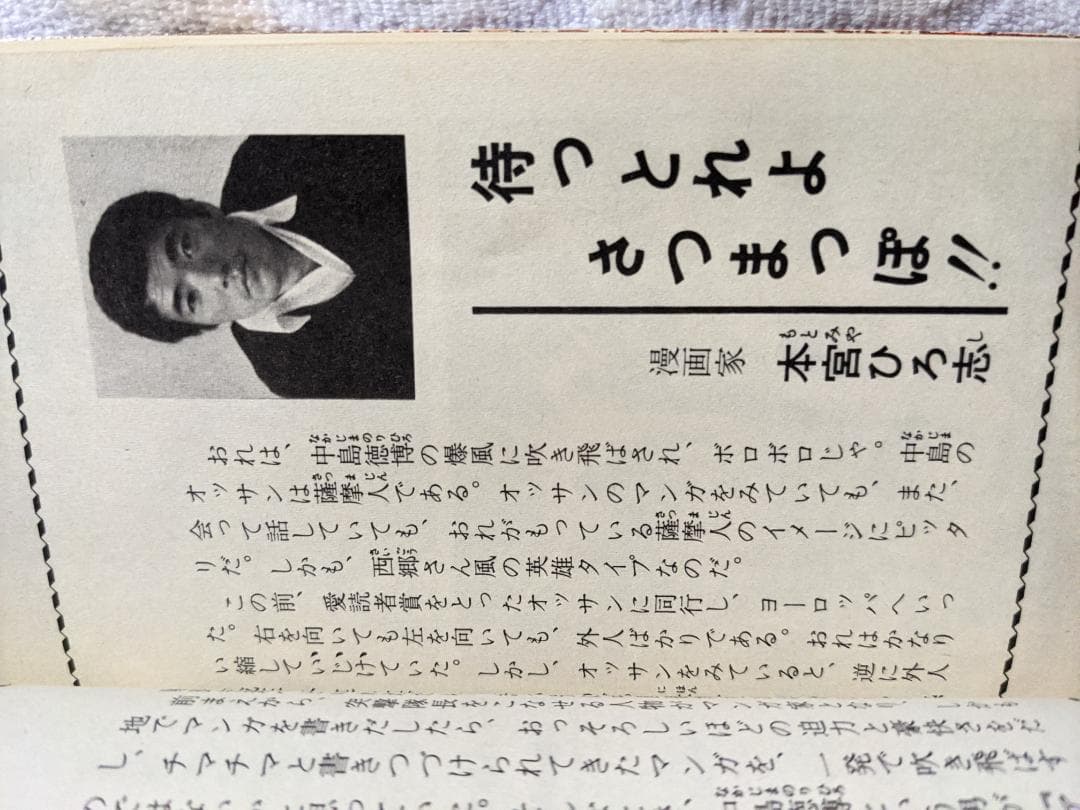 待っとれよ
さつまっぽ!!
漫画家　本宮ひろ志
もとみや　し
なかじまのりひろ　なかじま
おれは、中島徳博の爆風に吹き飛ばされ、ボロボロじゃ。中島の
さつまじん
オッサンは薩摩人である。オッサンのマンガをみていても、また、
さつまじん
会って話していても、おれがもっている薩摩人のイメージにピッタ
さいごう
リだ。しかも、西郷さん風の英雄タイプなのだ。
この前、愛読者賞をとったオッサンに同行し、ヨーロッパへいっ
た。右を向いても左を向いても、外人ばかりである。おれはかなり
い縮していじけていた。しかし、オッサンをみていると、逆に外人
地でマンガを書きだしたら、おっそろしいほどの迫力と豪快さをだ
し、チマチマと書きつづけられてきたマンガを、一発で吹き飛ばす
なかじまのりひろ